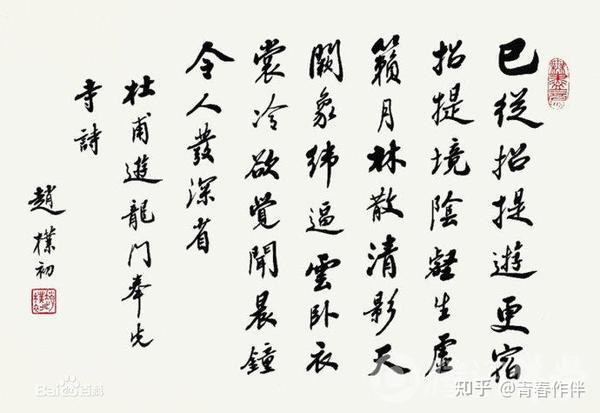 已從招提遊更宿
招提境陰壑生虛
籟月林散清影天
闕象緯逼雲臥衣
裳冷欲覺聞晨鐘
令人發深省
杜甫遊龍門奉先
寺詩
趙樸初
Bai百科
知乎 @青春作伴